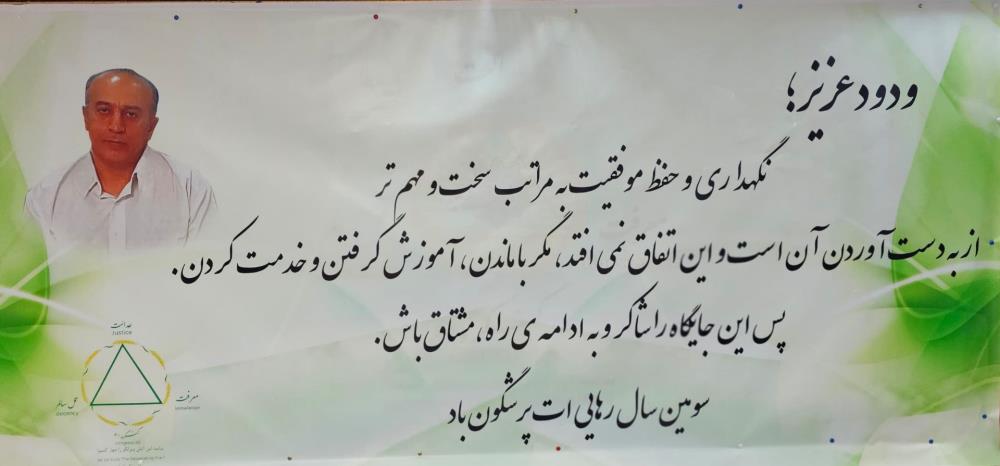 ودود عزیز؛
نگهداری و حفظ موفقیت به مراتب سخت و مهم تر
از به دست آوردن آن است و این اتفاق نمی افتد، مگر با ماندن، آموزش گرفتن و خدمت کردن.
پس این جایگاه را شاکر و به ادامه ی راه، مشتاق باش.
سومین سال رهایی ات پرشگون باد
عدالت
Justice
معرفت
عمل سالم
کنگره ۶۰
congress 60